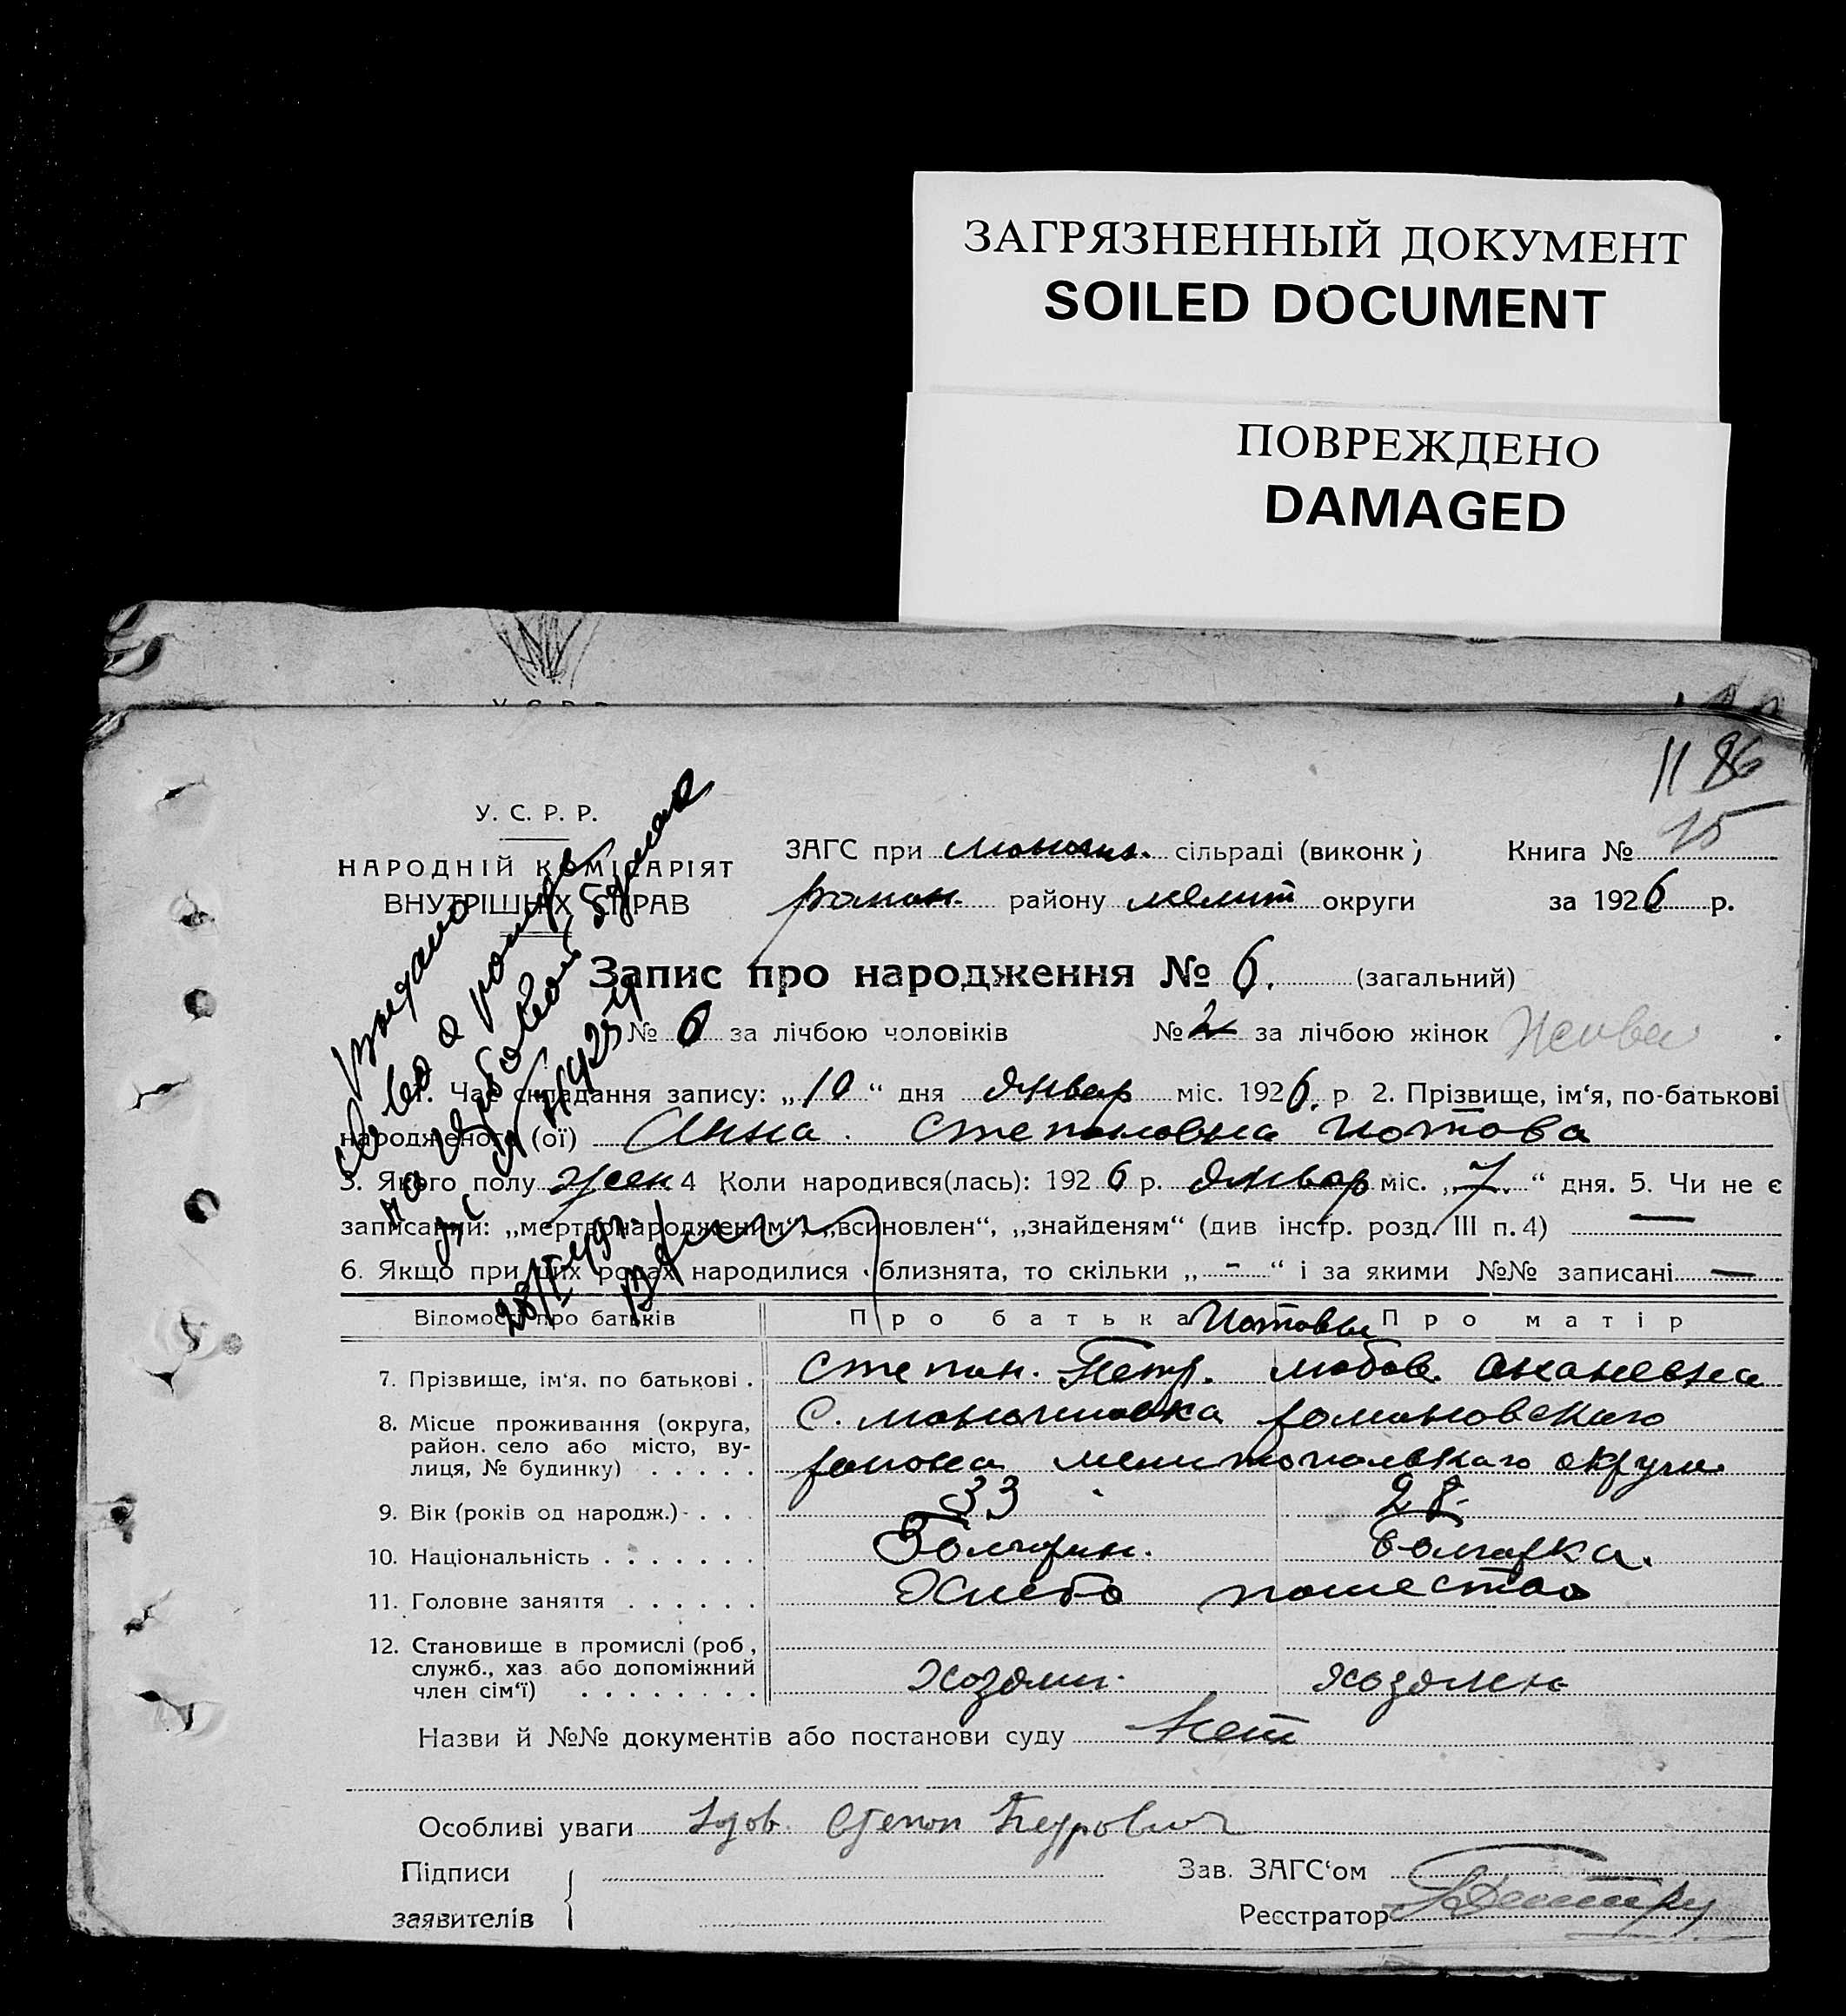 ЗАГРЯЗНЕННЫЙ ДОКУМЕНТ
SOILED DOCUMENT
ПОВРЕЖДЕНО
DAMAGED
11 86
У. С. Р. Р.
НАРОДНІЙ КОМІСАРІЯТ
ВНУТРІШНІХ СПРАВ
ЗАГС при сільраді (виконк)
роман. району мелит округи
Книга № 15
за 1926 р.
Запис про народження № 6. (загальний)
№ 6 за лічбою чоловіків № 2 за лічбою жінок
1. Час складання запису: „10“ дня январ міс. 1926. р 2. Прізвище, ім‘я, по-батькові
народженого (ої) Анна. Степановна Иотова
3. Якого полу жен 4 Коли народився(лась): 1926 р. январ міс. „7.“ дня. 5. Чи не є
записаний: „мертвонародженим“, „всиновлен“, „знайденям“ (див інстр. розд. III п. 4) —
6. Якщо при цих родах народилися близнята, то скільки „-“ і за якими №№ записані —
Відомості про батьків Про батька Иотовы Про матір
7. Прізвище, ім‘я, по батькові . Степан. Петр. любов. Ананевна
8. Місце проживання (округа, район. село або місто, вулиця, № будинку) . . . . .
С. романовскаго
района мелитопольскаго округи
9. Вік (років од народж.) - . . . 33 28.
10. Національність . . . . . . . Болгарин. болгарка.
11. Головне заняття . . . . . . Хлебо пашество
12. Становище в промислі (роб, служб., хаз або допоміжний член сім‘ї) . . . . . . . . хозяин. хозяйка
Назви й №№ документів або постанови суду нет
Особливі уваги Степан Петрович
Підписи
заявителів
Зав. ЗАГС‘ом
Реєстратор
Выдано
св во о рожд